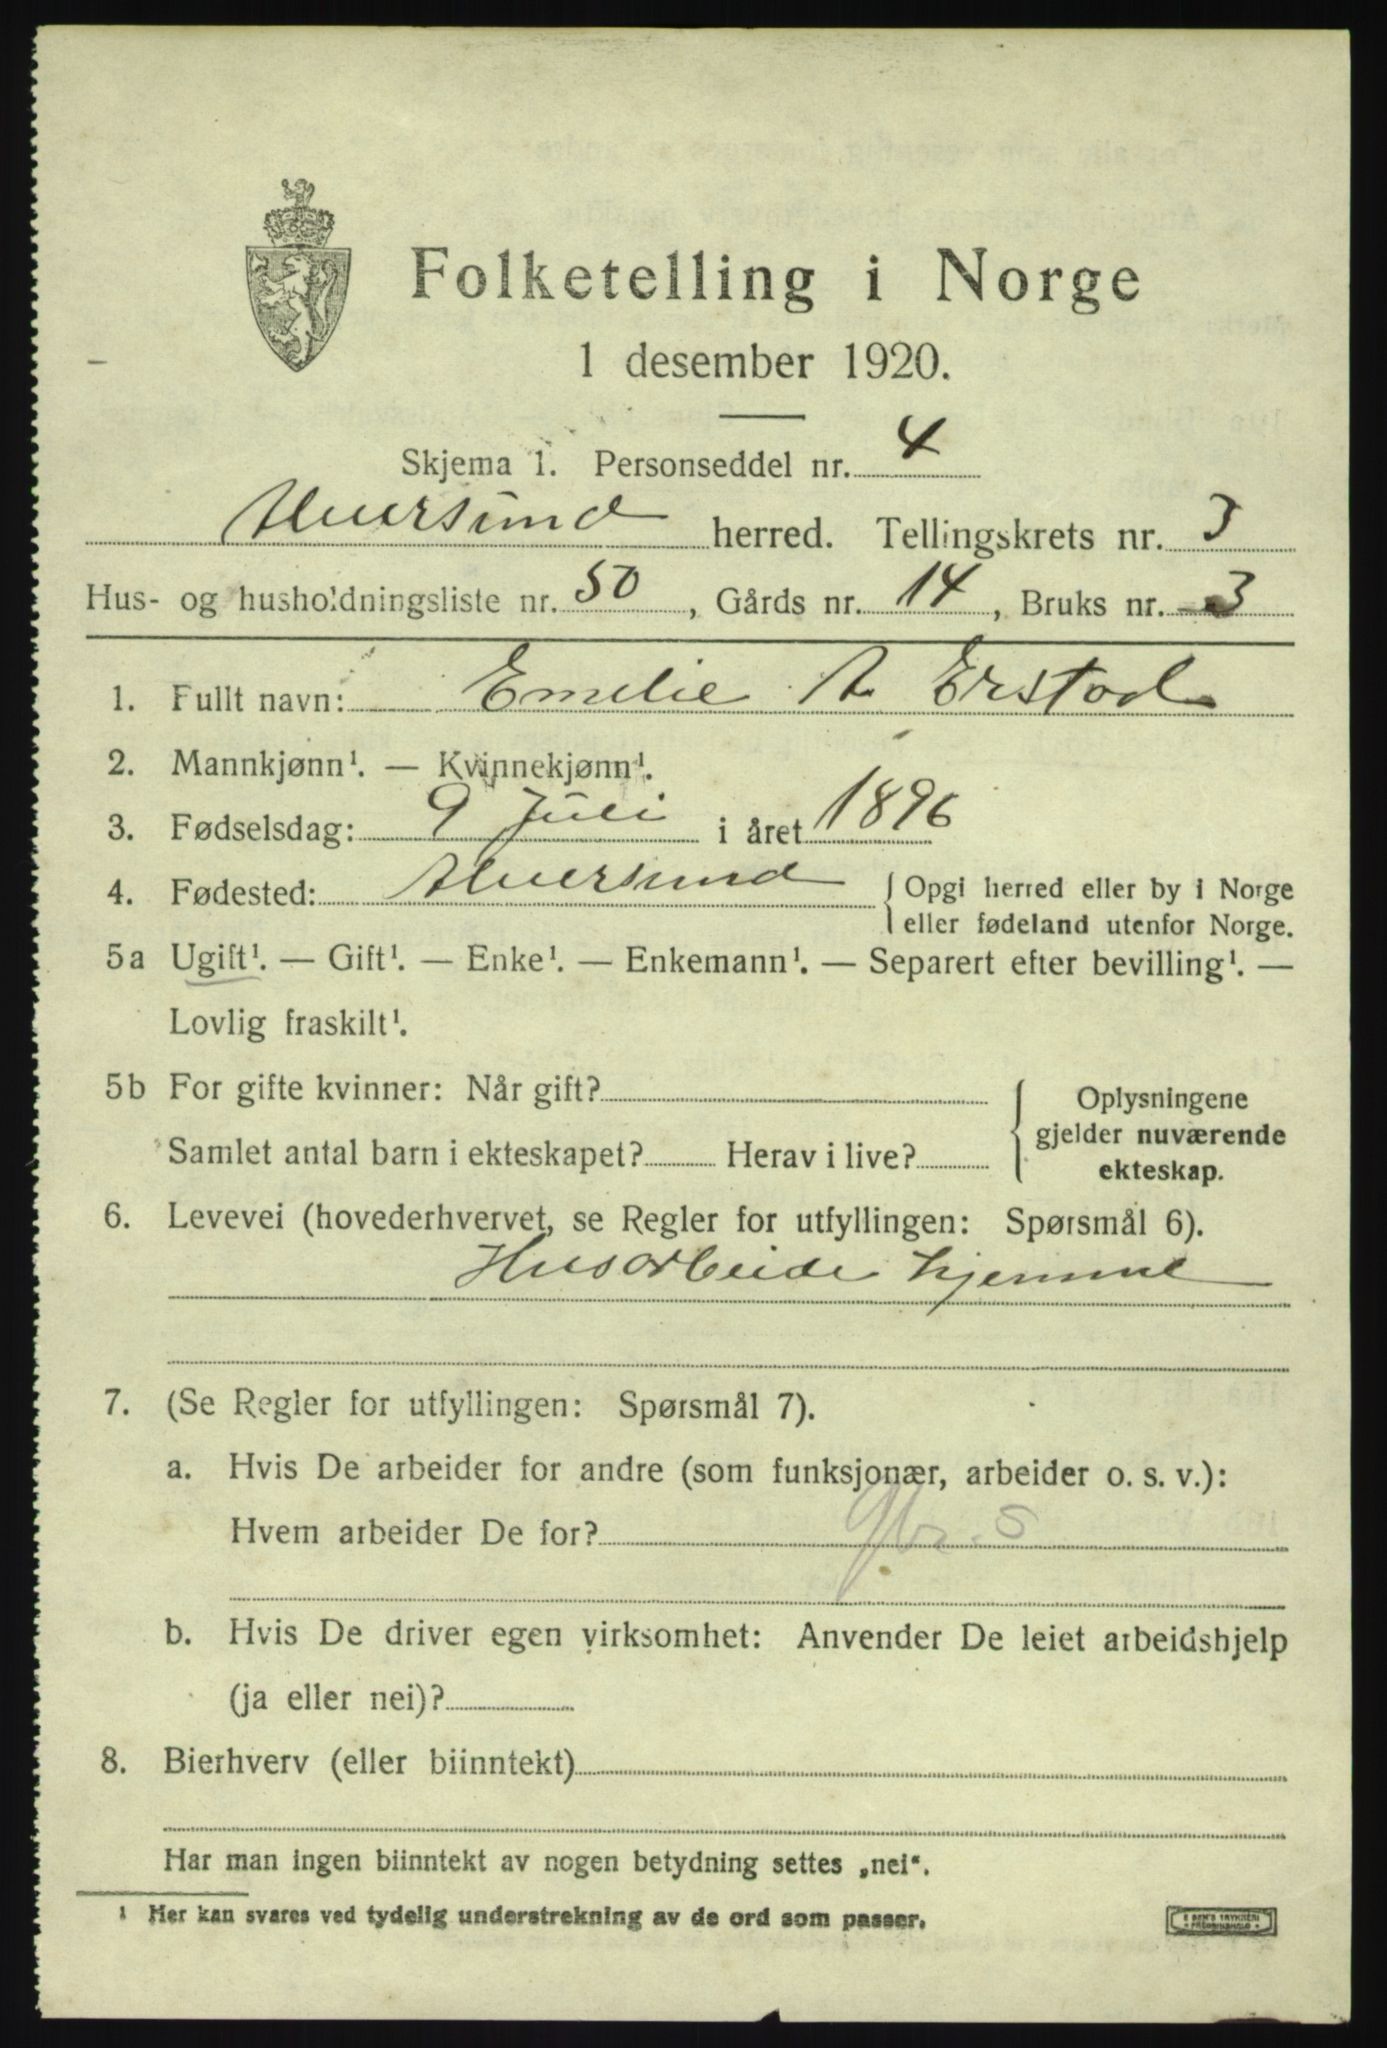 Folketelling i Norge
1 desember 1920.
Skjema 1. Personseddel nr. 4
Alversund herred. Tellingskrets nr. 3
Hus- og husholdningsliste nr. 50, Gårds nr. 14, Bruks nr. 3
1. Fullt navn: Emelie A. Erstad
2. Mannkjønn¹. — Kvinnekjønn¹.
3. Fødselsdag: 9 Juli i året 1896
4. Fødested: Alversund { Opgi herred eller by i Norge
eller fødeland utenfor Norge.
5a Ugift¹. — Gift¹. — Enke¹. — Enkemann¹. — Separert efter bevilling¹. —
Lovlig fraskilt¹.
5b For gifte kvinner: Når gift? { Oplysningene
gjelder nuværende
Samlet antal barn i ekteskapet? Herav i live?
ekteskap.
6. Levevei (hovederhvervet, se Regler for utfyllingen: Spørsmål 6).
Husarbeide hjemme
7. (Se Regler for utfyllingen: Spørsmål 7).
a. Hvis De arbeider for andre (som funksjonær, arbeider o. s. v.):
Hvem arbeider De for?
b. Hvis De driver egen virksomhet: Anvender De leiet arbeidshjelp
(ja eller nei)?
8. Bierhverv (eller biinntekt)
Har man ingen biinntekt av nogen betydning settes „nei".
¹ Her kan svares ved tydelig understrekning av de ord som passer.